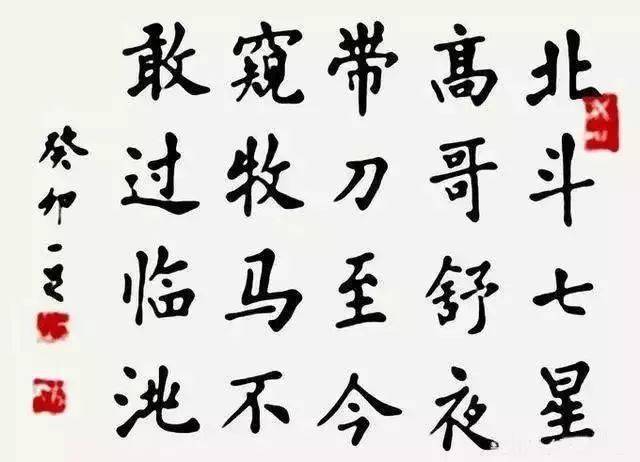 北斗七星
髙哥舒夜
带刀至今
窥牧马不
敢过临洮
癸卯一